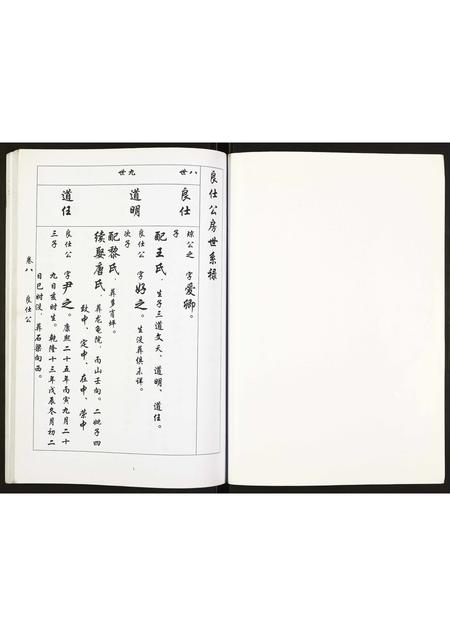 良仕公房世系录
八世
良仕
琼公之子
字爱卿。
配王氏,生子三道文夭,道明、道任。
九世
道明
良仕公次子
字好之。生没葬俱未详。
配黎氏,葬多育坪。
续娶唐氏,葬龙龟院,丙山壬向。二妣子四
致中、定中、在中、荣中
道任
良仕公三子
字尹之。康熙二十五年丙寅九月二十
九日亥时生。乾隆十三年戊辰冬月初二
日巳时没,葬石梁向西。
卷八 良仕公
1